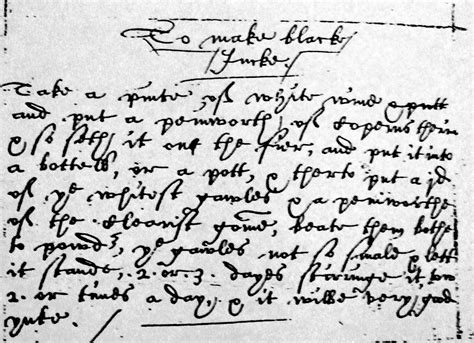 To make blacke
Jncke.
Take a pinte of white wine & putt
and put a peniworth of Coperis therin
& so seth it on the fier, and put it into
a bottell, or a pott, & therto put a jd
of ye whitest gawles & a peniworthe
of the clearist gome, beate them bothe
to powdr, ye gawles not so smale & lett
it stande, .2. or .3. dayes starringe it,
2. or times a day, & it wilbe very good
ynke.